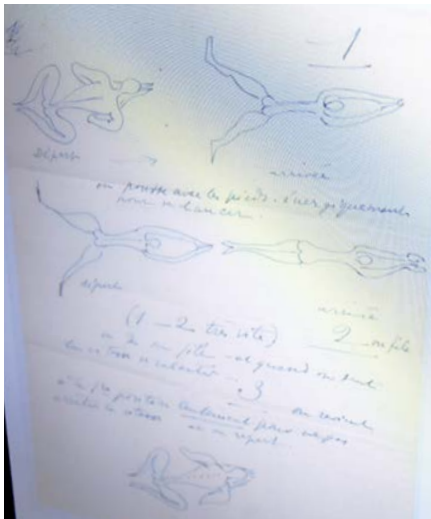 1
départ
arrivée
on pousse avec les pieds. énergiquement
pour se lancer.
départ
arrivée
(1 – 2 très vite) 2 on file
on file et quand on sent
la vitesse se ralentir .. 3 on revient
position lentement pour ne pas
arrêter la vitesse et on repart